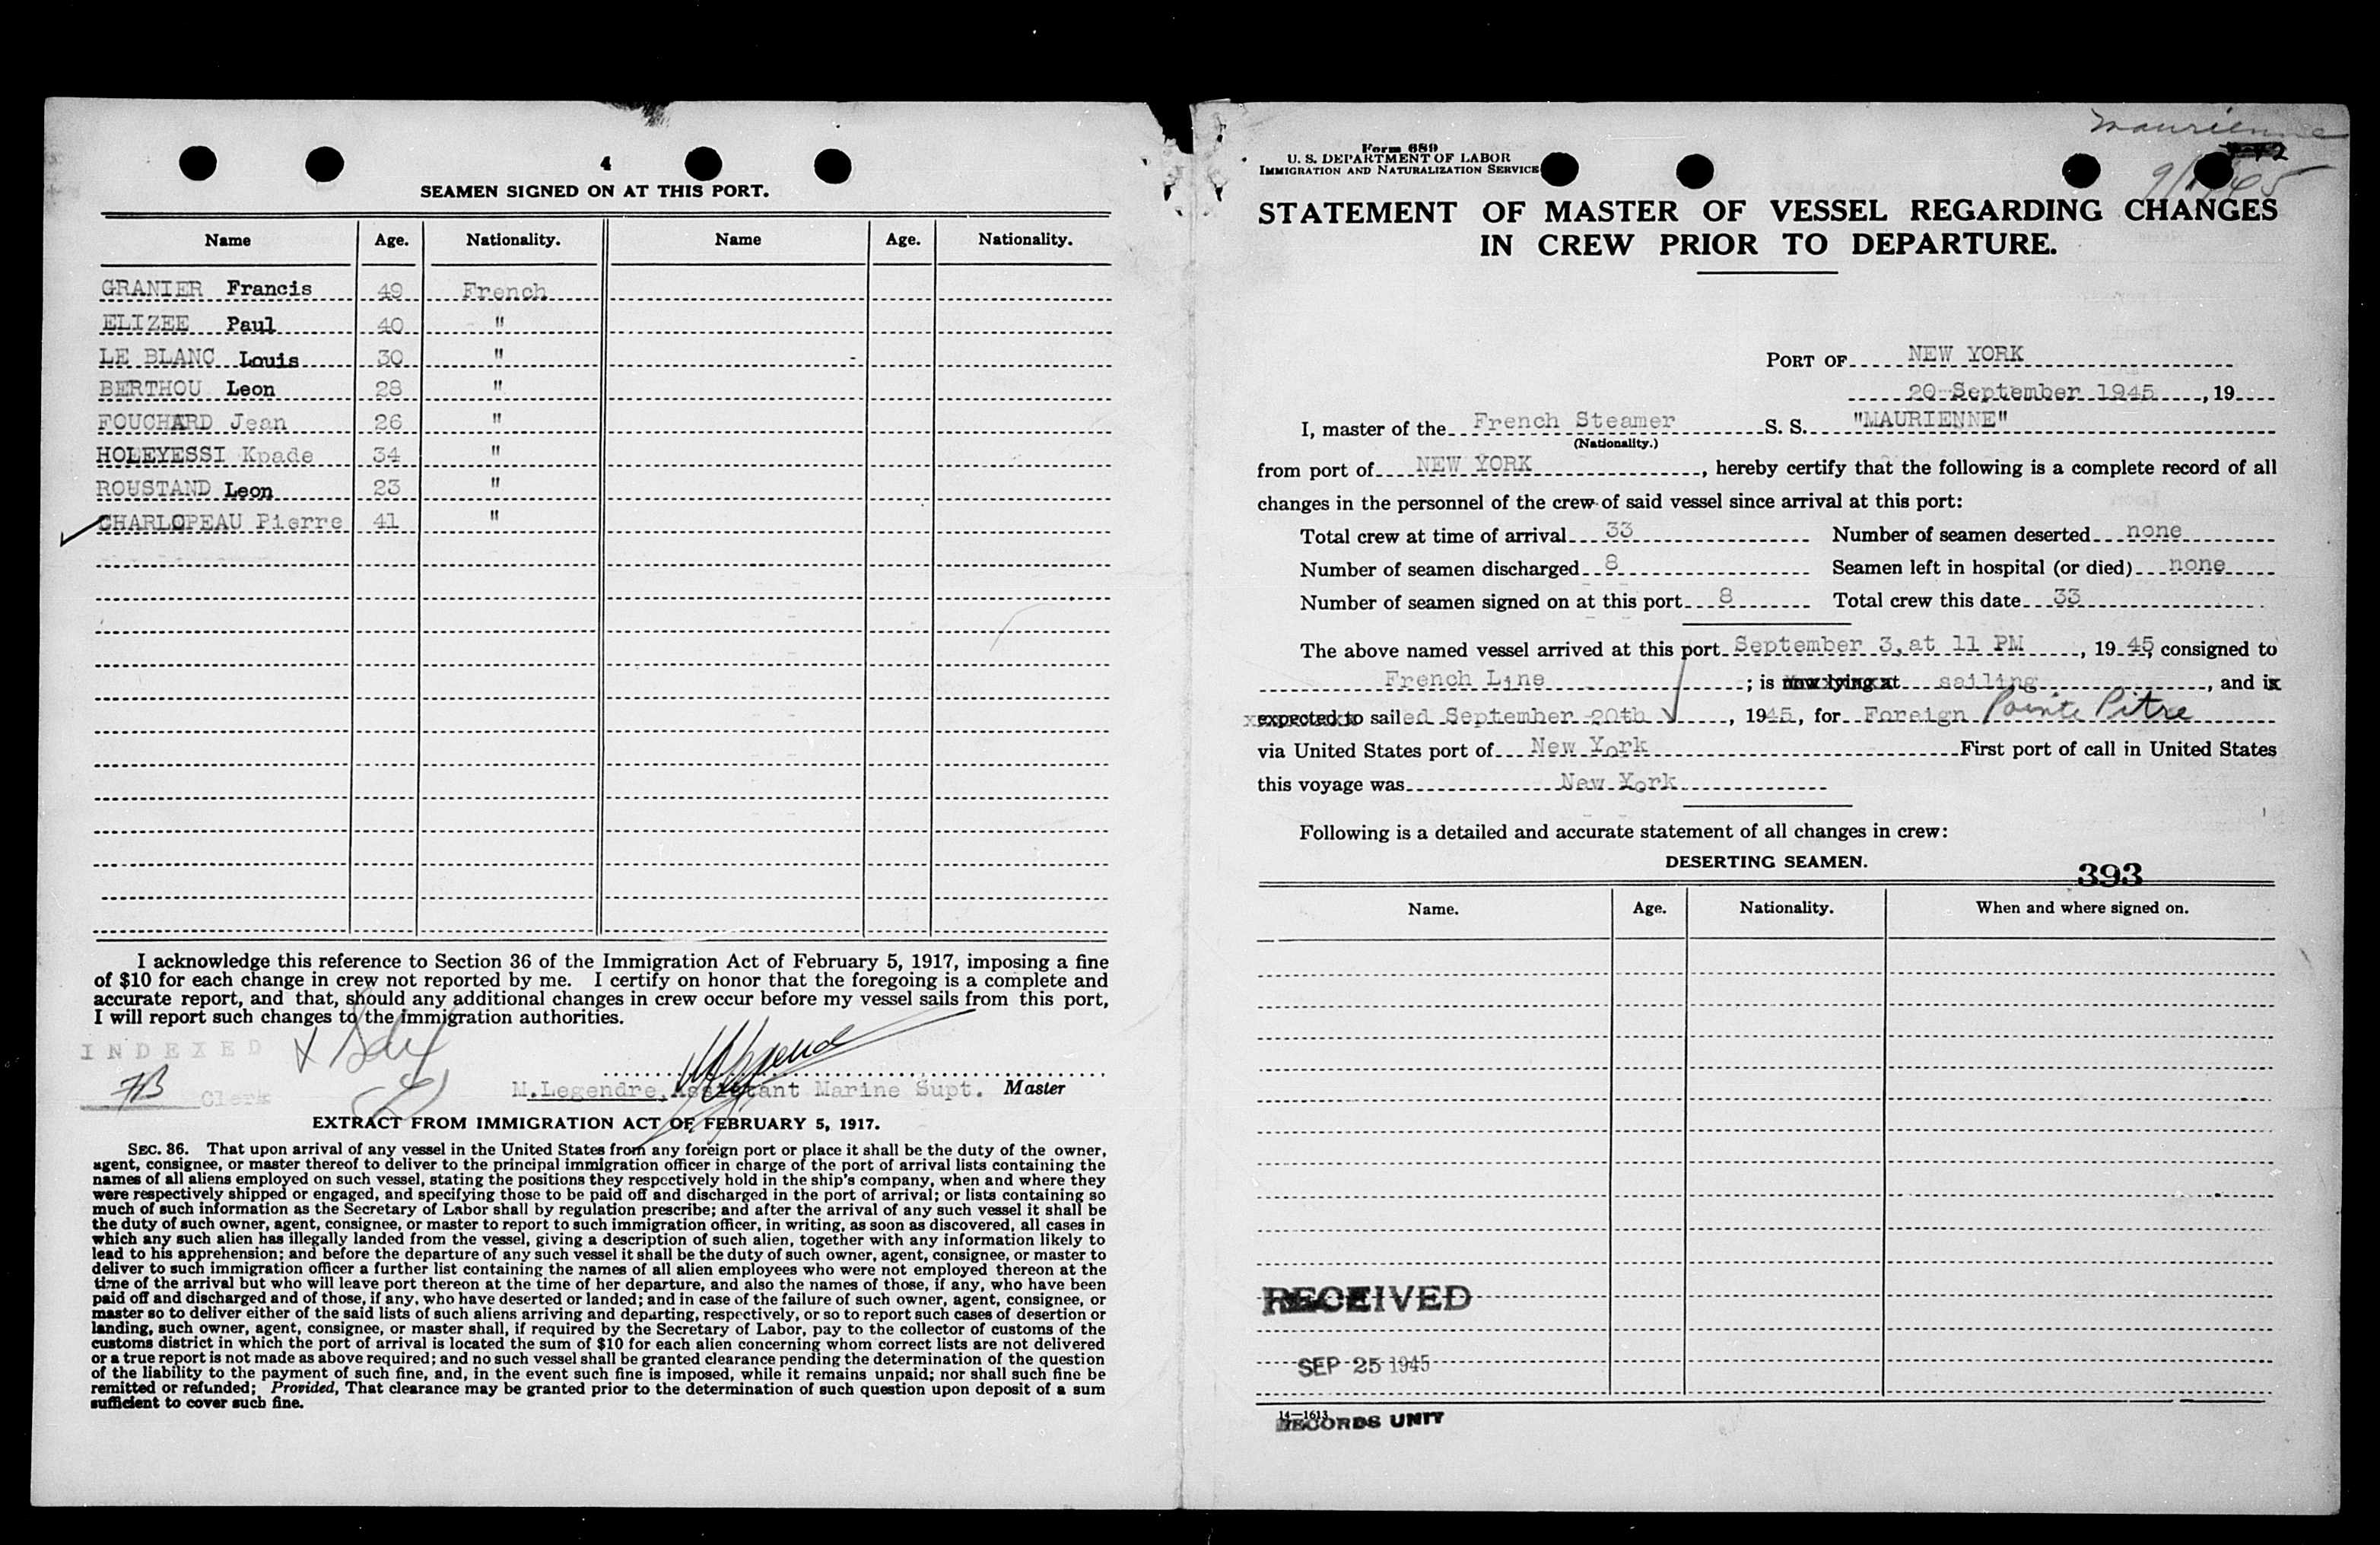 4
SEAMEN SIGNED ON AT THIS PORT.
Name Age. Nationality. Name Age. Nationality.
GRANIER Francis 49 French
ELIZEE Paul 40 "
LE BLANC Louis 30 "
BERTHOU Leon 28 "
FOUCHARD Jean 26 "
HOLEYESSI Kpade 34 "
ROUSTAND Leon 23 "
CHARLOPEAU Pierre 41 "
I acknowledge this reference to Section 36 of the Immigration Act of February 5, 1917, imposing a fine
of $10 for each change in crew not reported by me. I certify on honor that the foregoing is a complete and
accurate report, and that, should any additional changes in crew occur before my vessel sails from this port,
I will report such changes to the immigration authorities.
INDEXED
Clerk
M.Legendre, Assistant Marine Supt. Master
EXTRACT FROM IMMIGRATION ACT OF FEBRUARY 5, 1917.
SEC. 36. That upon arrival of any vessel in the United States from any foreign port or place it shall be the duty of the owner,
agent, consignee, or master thereof to deliver to the principal immigration officer in charge of the port of arrival lists containing the
names of all aliens employed on such vessel, stating the positions they respectively hold in the ship's company, when and where they
were respectively shipped or engaged, and specifying those to be paid off and discharged in the port of arrival; or lists containing so
much of such information as the Secretary of Labor shall by regulation prescribe; and after the arrival of any such vessel it shall be
the duty of such owner, agent, consignee, or master to report to such immigration officer, in writing, as soon as discovered, all cases in
which any such alien has illegally landed from the vessel, giving a description of such alien, together with any information likely to
lead to his apprehension; and before the departure of any such vessel it shall be the duty of such owner, agent, consignee, or master to
deliver to such immigration officer a further list containing the names of all alien employees who were not employed thereon at the
time of the arrival but who will leave port thereon at the time of her departure, and also the names of those, if any, who have been
paid off and discharged and of those, if any, who have deserted or landed; and in case of the failure of such owner, agent, consignee, or
master so to deliver either of the said lists of such aliens arriving and departing, respectively, or so to report such cases of desertion or
landing, such owner, agent, consignee, or master shall, if required by the Secretary of Labor, pay to the collector of customs of the
customs district in which the port of arrival is located the sum of $10 for each alien concerning whom correct lists are not delivered
or a true report is not made as above required; and no such vessel shall be granted clearance pending the determination of the question
of the liability to the payment of such fine, and, in the event such fine is imposed, while it remains unpaid; nor shall such fine be
remitted or refunded; Provided, That clearance may be granted prior to the determination of such question upon deposit of a sum
sufficient to cover such fine.
Maurienne
Form 689
U. S. DEPARTMENT OF LABOR
IMMIGRATION AND NATURALIZATION SERVICE
STATEMENT OF MASTER OF VESSEL REGARDING CHANGES
IN CREW PRIOR TO DEPARTURE.
PORT OF NEW YORK
20 September 1945, 19
I, master of the French Steamer S. S. "MAURIENNE"
(Nationality.)
from port of NEW YORK, hereby certify that the following is a complete record of all
changes in the personnel of the crew of said vessel since arrival at this port:
Total crew at time of arrival 33 Number of seamen deserted none
Number of seamen discharged 8 Seamen left in hospital (or died) none
Number of seamen signed on at this port 8 Total crew this date 33
The above named vessel arrived at this port September 3, at 11 PM, 19 45, consigned to
French Line; is now lying at sailing, and is
expected to sailed September 20th, 1945, for Foreign Pointe Pitre
via United States port of New York First port of call in United States
this voyage was New York
Following is a detailed and accurate statement of all changes in crew:
DESERTING SEAMEN.
393
Name. Age. Nationality. When and where signed on.
RECEIVED
SEP 25 1945
14—1613
RECORDS UNIT